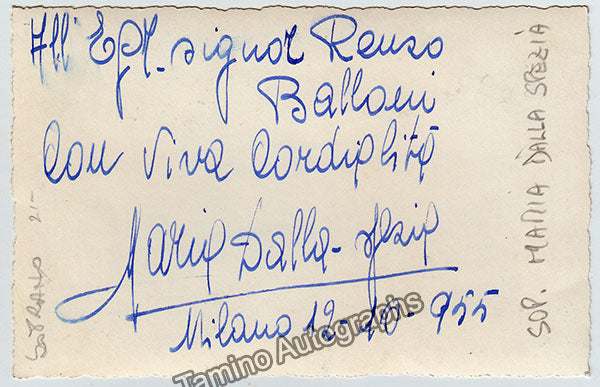 All' Egr. signor Renzo
Balloni
Con viva cordialità
Maria Dalla-Spezia
Milano 12-10-955
SOP. MARIA DALLA SPEZIA
SOPRANO 21-
Tamino Autographs